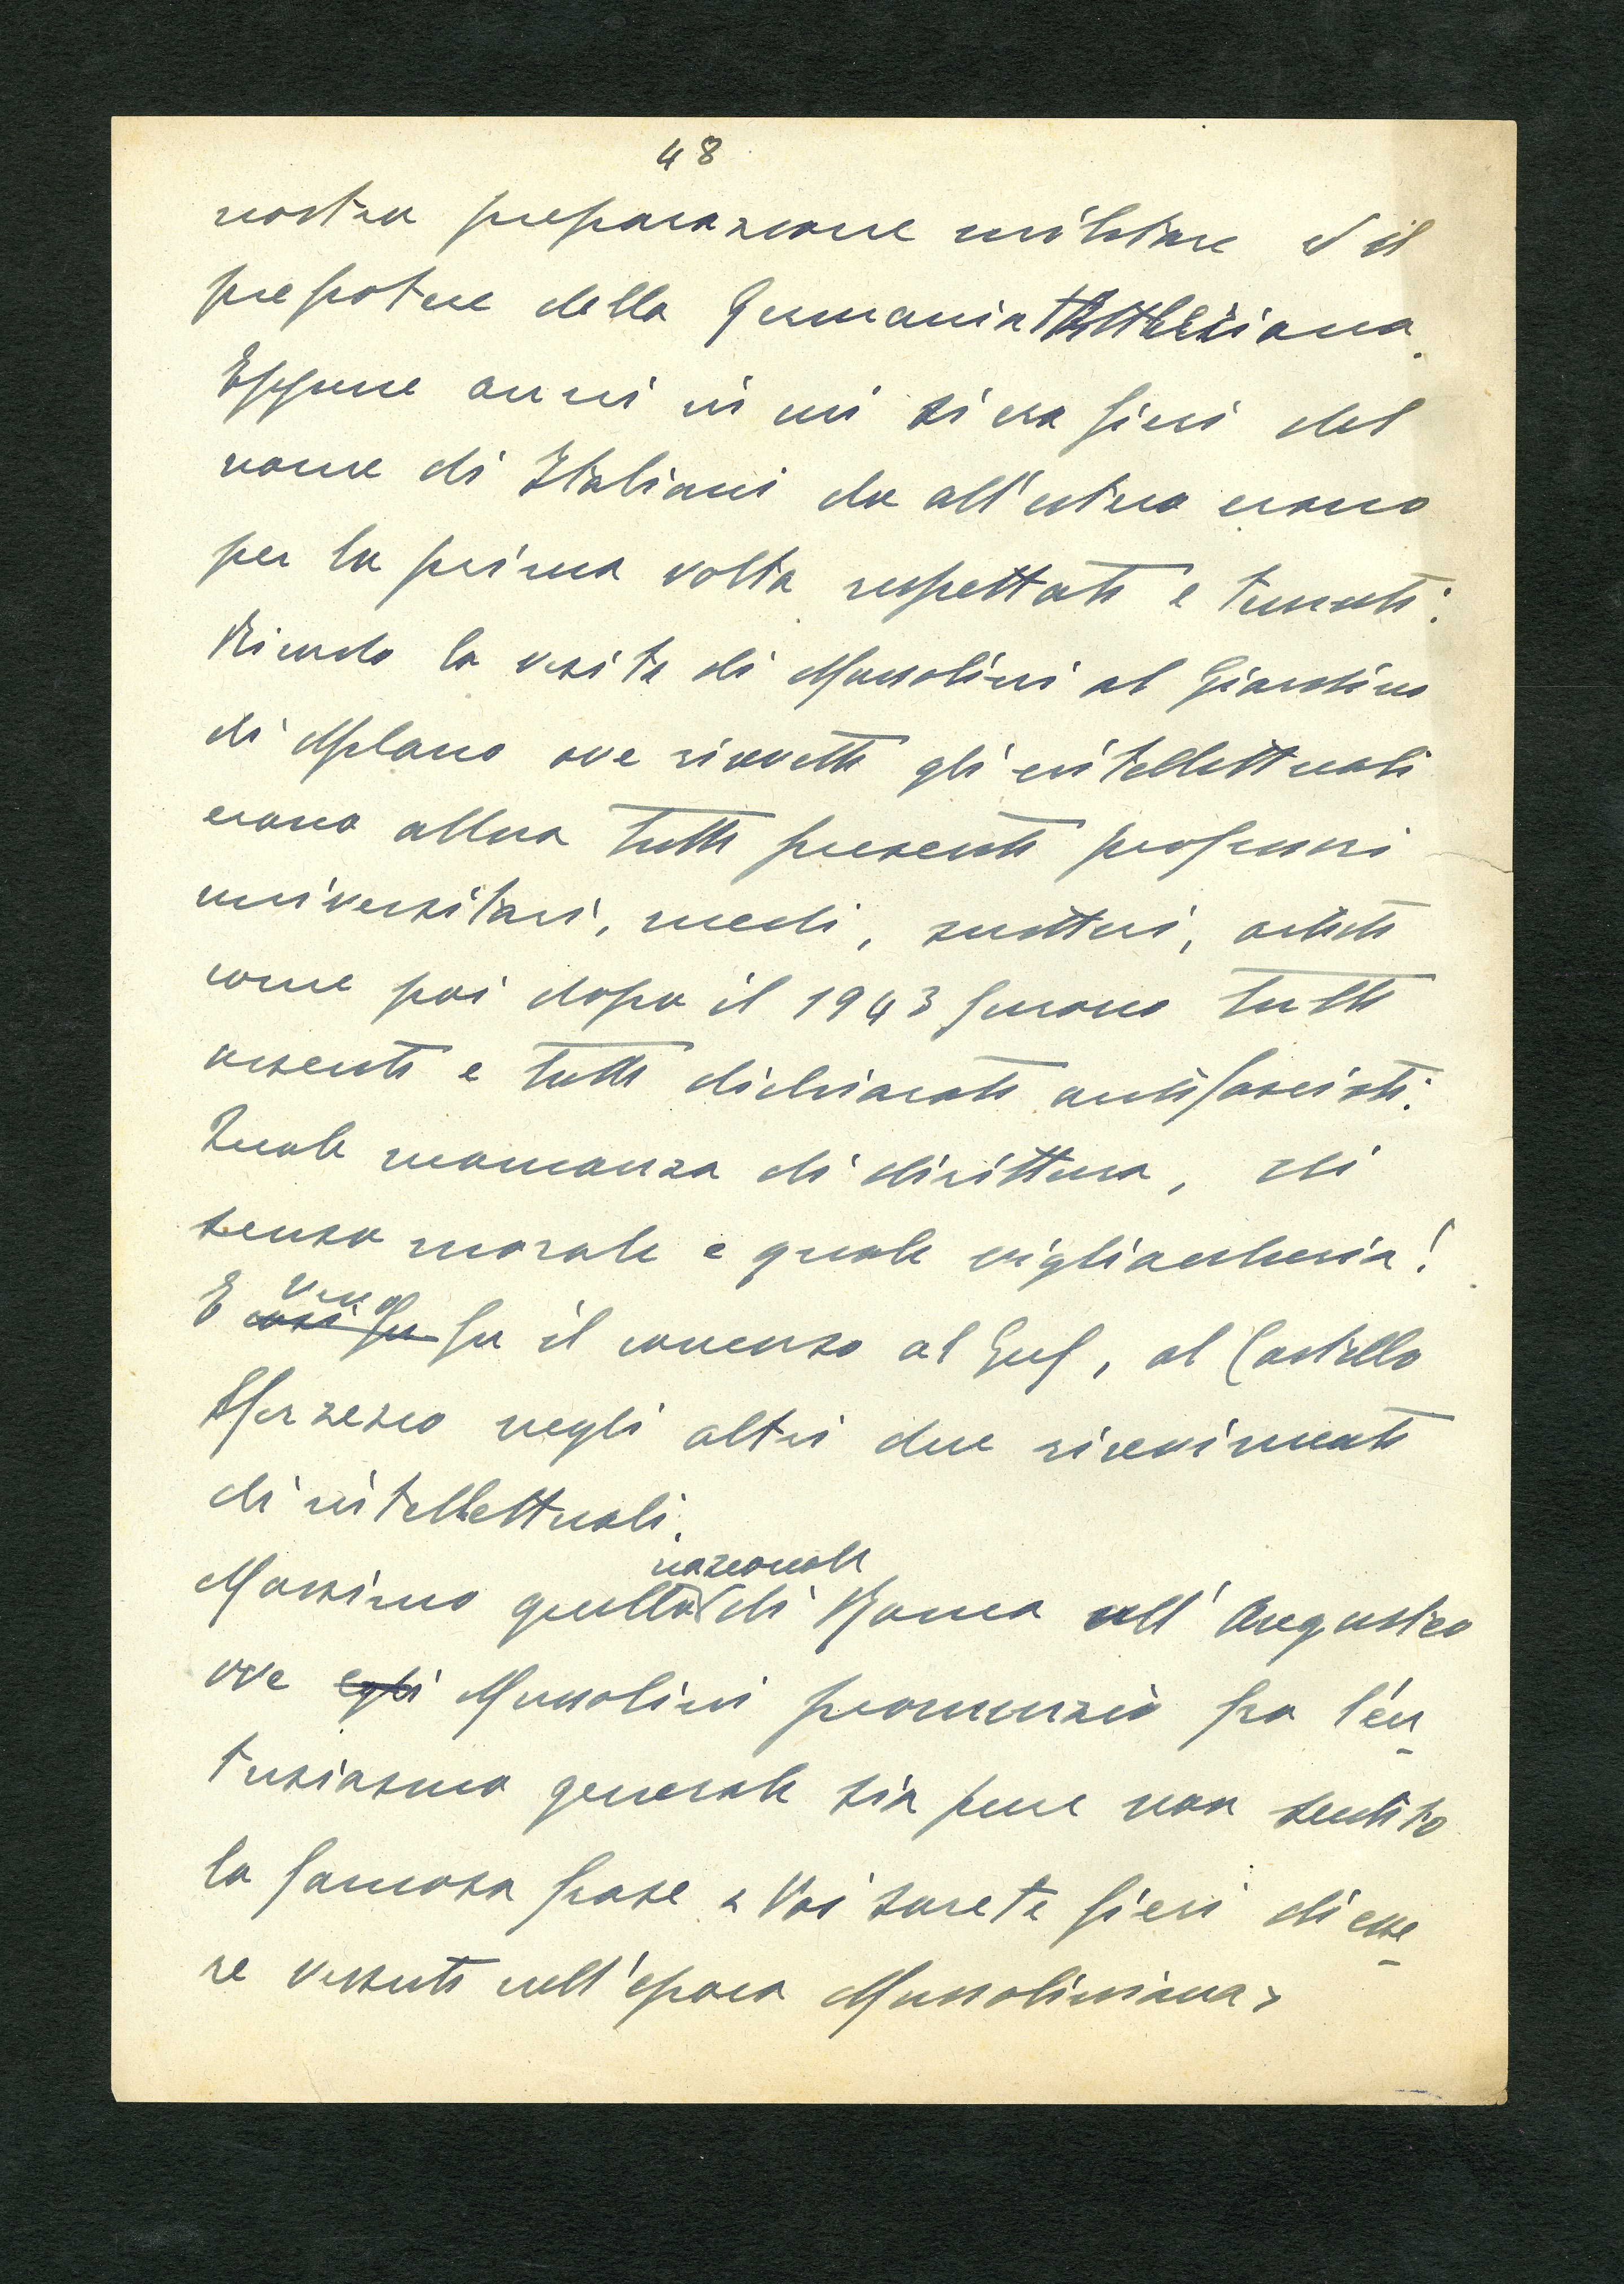 48
nostra preparazione militare ed il
prepotere della Germania Hitleriana.
Eppure anni in cui si era fieri del
nome di Italiani da all'estero erano
per la prima volta rispettati e temuti.
Ricordo la visita di Mussolini al Giardino
di Milano ove ricevette gli intellettuali
erano allora tutti presenti professori
universitari, medi, scrittori, artisti
come poi dopo il 1943 furono tutti
assenti e tutti dichiarati antifascisti.
Quale mancanza di dirittura, di
senso morale e quale vigliaccheria!
E vero
così fu fu il concorso al Guf, al Castello
Sforzesco negli altri due ricevimenti
di intellettuali.
nazionale
Massimo quello di Roma nell'Augusteo
ove egli Mussolini pronunziò fra l'en
tusiasmo generale sia pure non sentito
la famosa frase « Voi sarete fieri di esse
re vissuti nell'epoca Mussoliniana »